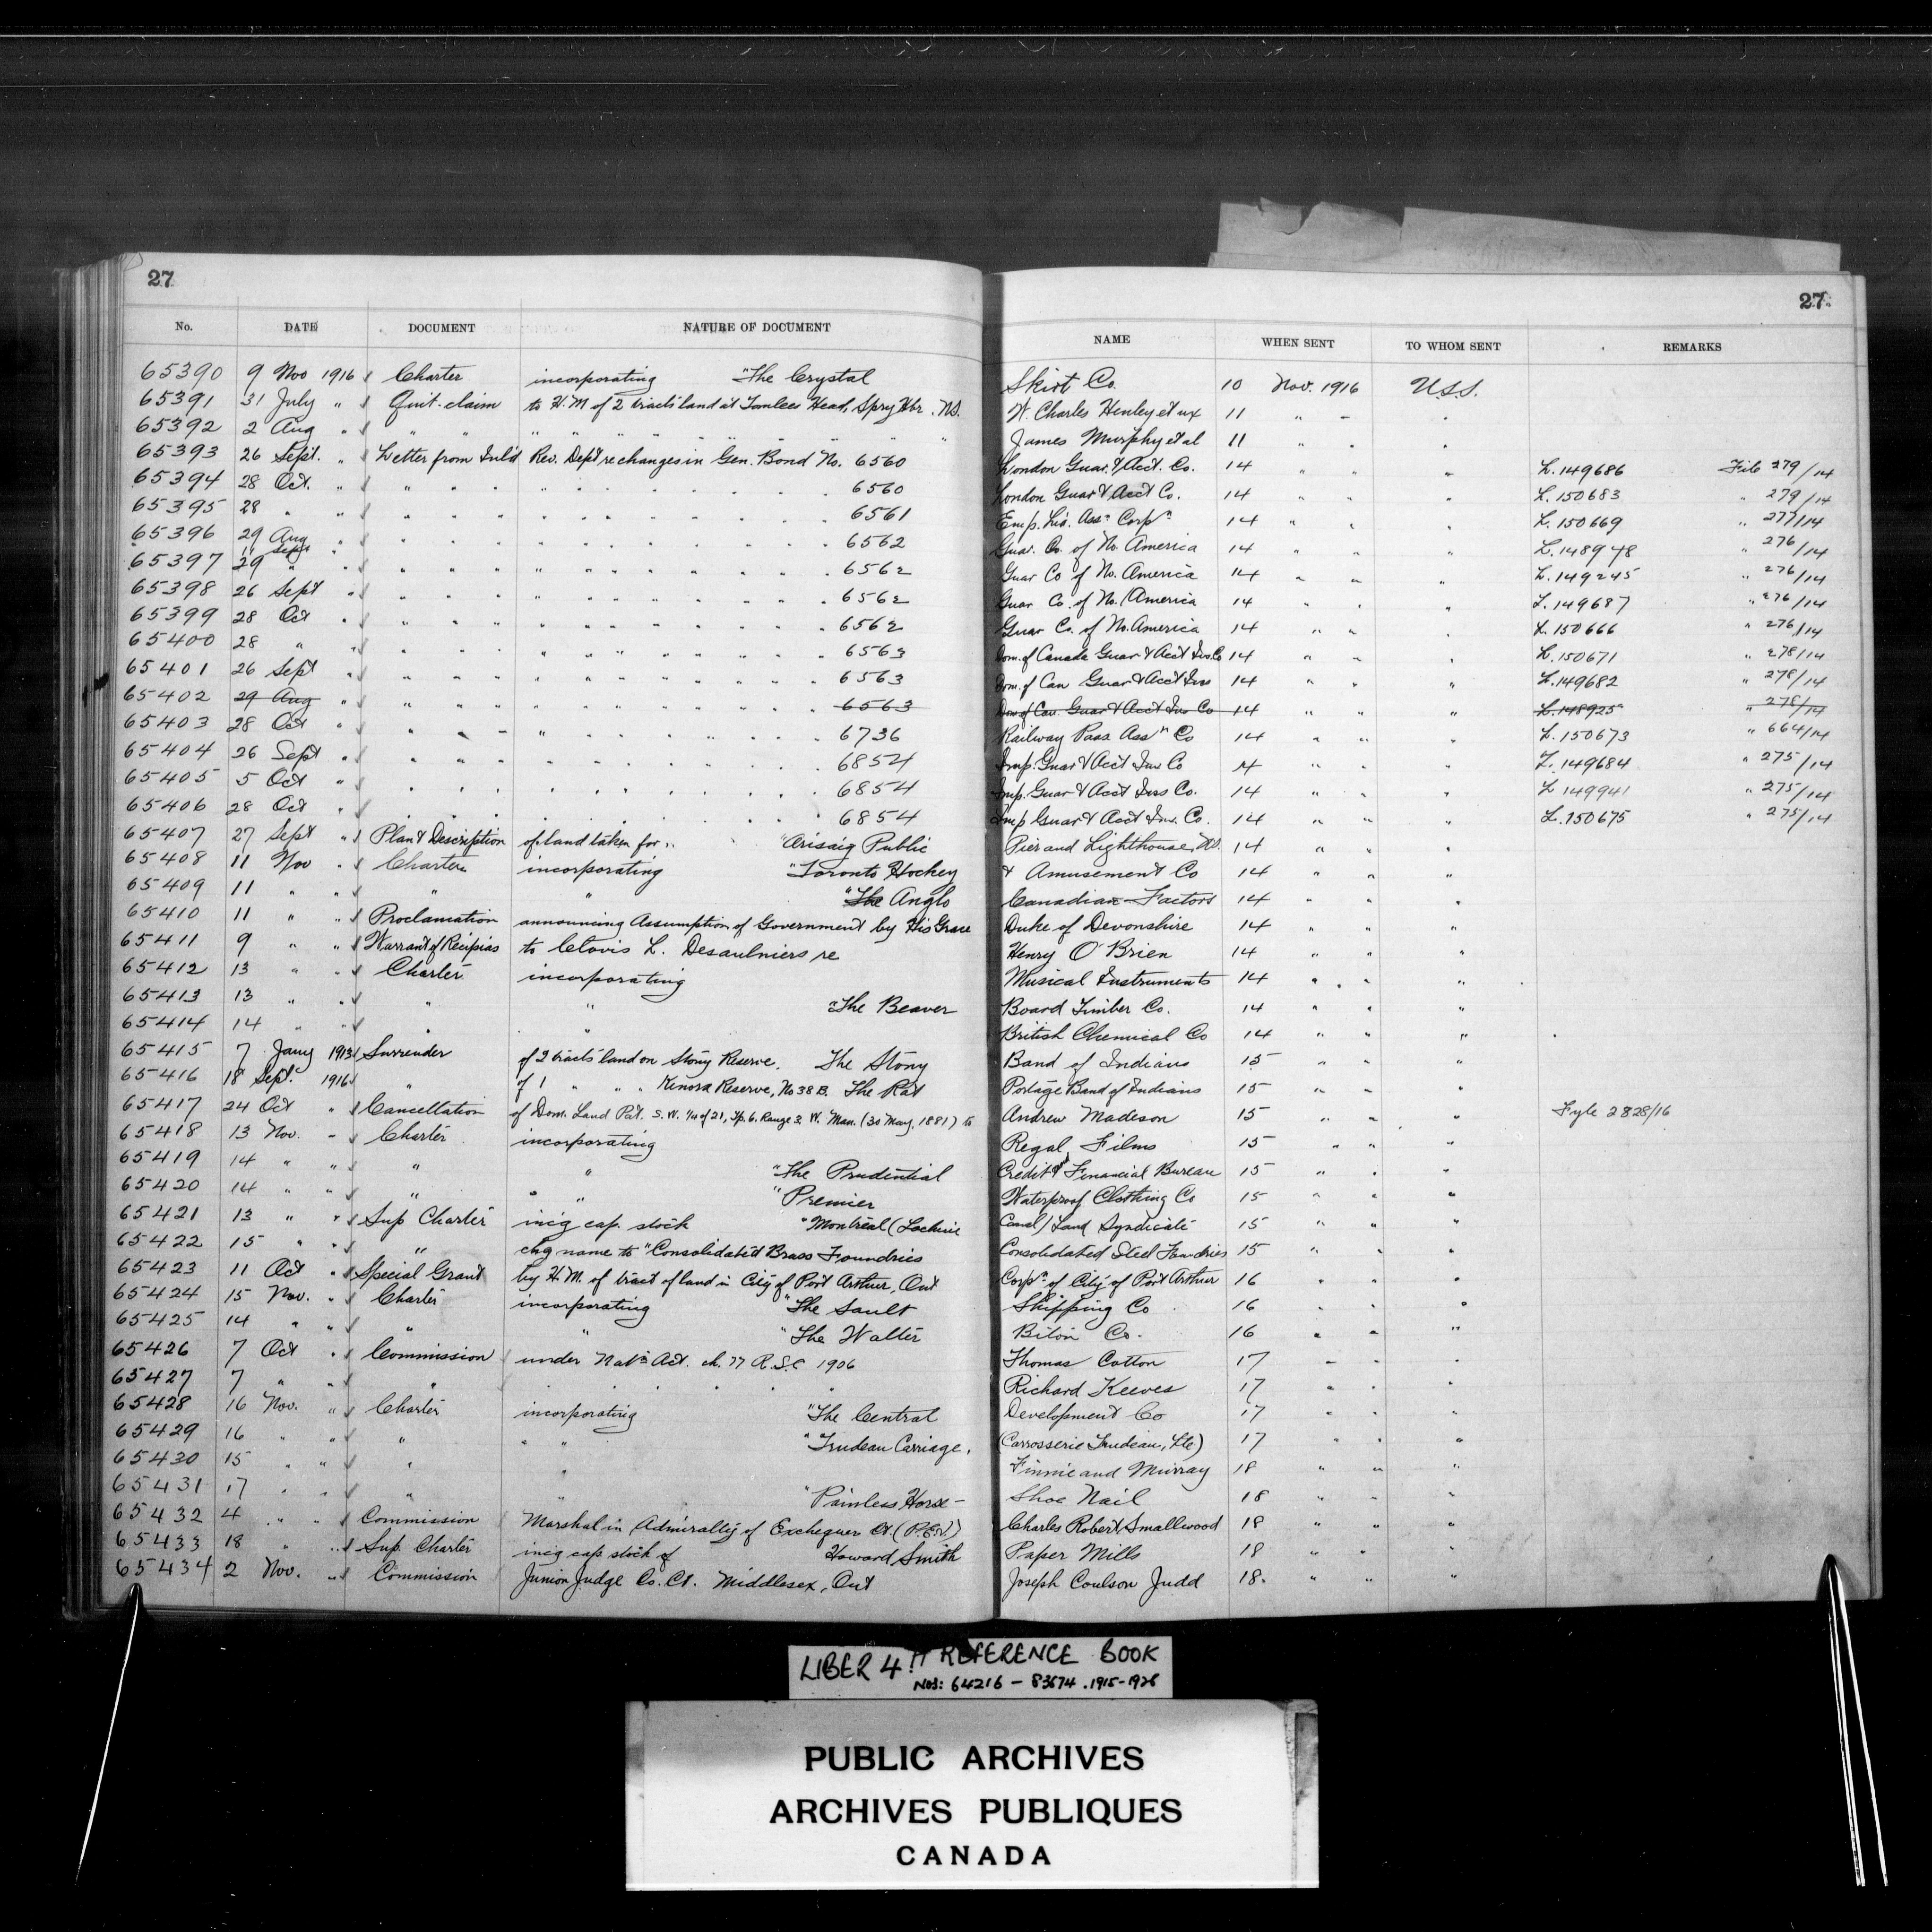 27
No. DATE DOCUMENT NATURE OF DOCUMENT
27
NAME WHEN SENT TO WHOM SENT REMARKS
65390 9 Nov 1916 Charter incorporating "The Crystal Skirt Co. 10 Nov. 1916 U.S.S.
65391 31 July " Quit-claim to H.M of 2 tracts land at Head, Spry Hbr. N.S. W. Charles Henley et ux 11 " "
65392 2 Aug " " " " " James Murphy et al 11 " " "
65393 26 Sept. " Letter from Inl'd Rev. Dept re changes in Gen. Bond No. 6560 London Guar. & Acct. Co. 14 " " " L. 149686 File 279/14
65394 28 Oct. " " " " " 6560 London Guar & Acct Co. 14 " " " L. 150683 " 279/14
65395 28 " " " " " " 6561 Emp. Lia. Assn Corpn 14 " " " L. 150669 " 277/14
65396 29 Aug " " " " " 6562 Guar. Co. of No. America 14 " " " L. 148948 " 276/14
65397 Sept " " " " " 6562 Guar Co of No. America 14 " " " L. 149245 " 276/14
65398 26 Sept " " " " " 6562 Guar Co. of No. America 14 " " " L. 149687 " 276/14
65399 28 Oct " " " " " 6562 Guar Co. of No. America 14 " " " L. 150666 " 276/14
65400 28 " " " " " " 6563 Dom. of Canada Guar & Acct Ins Co 14 " " " L. 150671 " 278/14
65401 26 Sept " " " " " 6563 Dom. of Can Guar & Acct Ins 14 " " " L. 149682 " 278/14
65402 29 Aug " " " " " 6563 Dom of Can. Guar & Acct Ins Co 14 " " " L. 148925 " 278/14
65403 28 Oct " " " " " 6736 Railway Pass Assn Co 14 " " " L. 150673 " 664/14
65404 26 Sept " " " " " 6854 Imp. Guar & Acct Ins Co 14 " " " L. 149684 " 275/14
65405 5 Oct " " " " " 6854 Imp. Guar & Acct Ins Co. 14 " " " L 149941 " 275/14
65406 28 Oct " " " " " 6854 Imp Guar & Acct Ins. Co. 14 " " " L. 150675 " 275/14
65407 27 Sept " Plan & Description of land taken for "Arisaig Public Pier and Lighthouse, NS. 14 " " "
65408 11 Nov " Charter incorporating "Toronto Hockey & Amusement Co 14 " " "
65409 11 " " " " "The Anglo Canadian Factors 14 " " "
65410 11 " " Proclamation announcing Assumption of Government by His Grace Duke of Devonshire 14 " " "
65411 9 " " Warrant of Recipias to Clovis L. Desaulniers re Henry O'Brien 14 " " "
65412 13 " " Charter incorporating Musical Instruments 14 " " "
65413 13 " " " " "The Beaver Board Timber Co. 14 " " "
65414 14 " " " " British Chemical Co 14 " " "
65415 7 Jany 1913 Surrender of 2 tracts land on Stony Reserve. The Stony Band of Indians 15 " " "
65416 18 Sept. 1916 " of 1 " " " Kenora Reserve, No 38 B. The Rat Portage Band of Indians 15 " " "
65417 24 Oct " Cancellation of Dom. Land Pat. S.W. 1/4 of 21, Tp. 6, Range 3 W. Man. (30 May, 1881) to Andrew Madeson 15 " " " Fyle 2828/16
65418 13 Nov. " Charter incorporating Regal Films 15 " " "
65419 14 " " " " "The Prudential Credit & Financial Bureau 15 " " "
65420 14 " " " " "Premier Waterproof Clothing Co 15 " " "
65421 13 " " Sup Charter inc'g cap. stock "Montreal (Lachine Canal) Land Syndicate 15 " " "
65422 15 " " " chg name to "Consolidated Brass Foundries Consolidated Steel Foundries 15 " " "
65423 11 Oct " Special Grant by H.M. of tract of land in City of Port Arthur, Ont Corpn of City of Port Arthur 16 " " "
65424 15 Nov. " Charter incorporating "The Sault Shipping Co 16 " " "
65425 14 " " " " "The Walter Co. 16 " " "
65426 7 Oct " Commission under Natn Act. ch. 77 R.S.C 1906 Thomas Cotton 17 " " "
65427 7 " " " " " " " Richard Keeves 17 " " "
65428 16 Nov. " Charter incorporating "The Central Development Co 17 " " "
65429 16 " " " " " "Trudeau Carriage, (Carrosserie Trudeau, Lte) 17 " " "
65430 15 " " " " Finnie and Murray 18 " " "
65431 17 " " " " "Painless Horse- Shoe Nail 18 " " "
65432 4 " " Commission Marshal in Admiralty of Exchequer Ct. (P.E.I.) Charles Robert Smallwood 18 " " "
65433 18 " " Sup. Charter inc'g cap stock of Howard Smith Paper Mills 18 " " "
65434 2 Nov. " Commission Junior Judge Co. Ct. Middlesex, Ont Joseph Coulson Judd 18. " " "
LIBER 4 REFERENCE BOOK
NOS: 64216 - 83674 . 1915-1926
PUBLIC ARCHIVES
ARCHIVES PUBLIQUES
CANADA